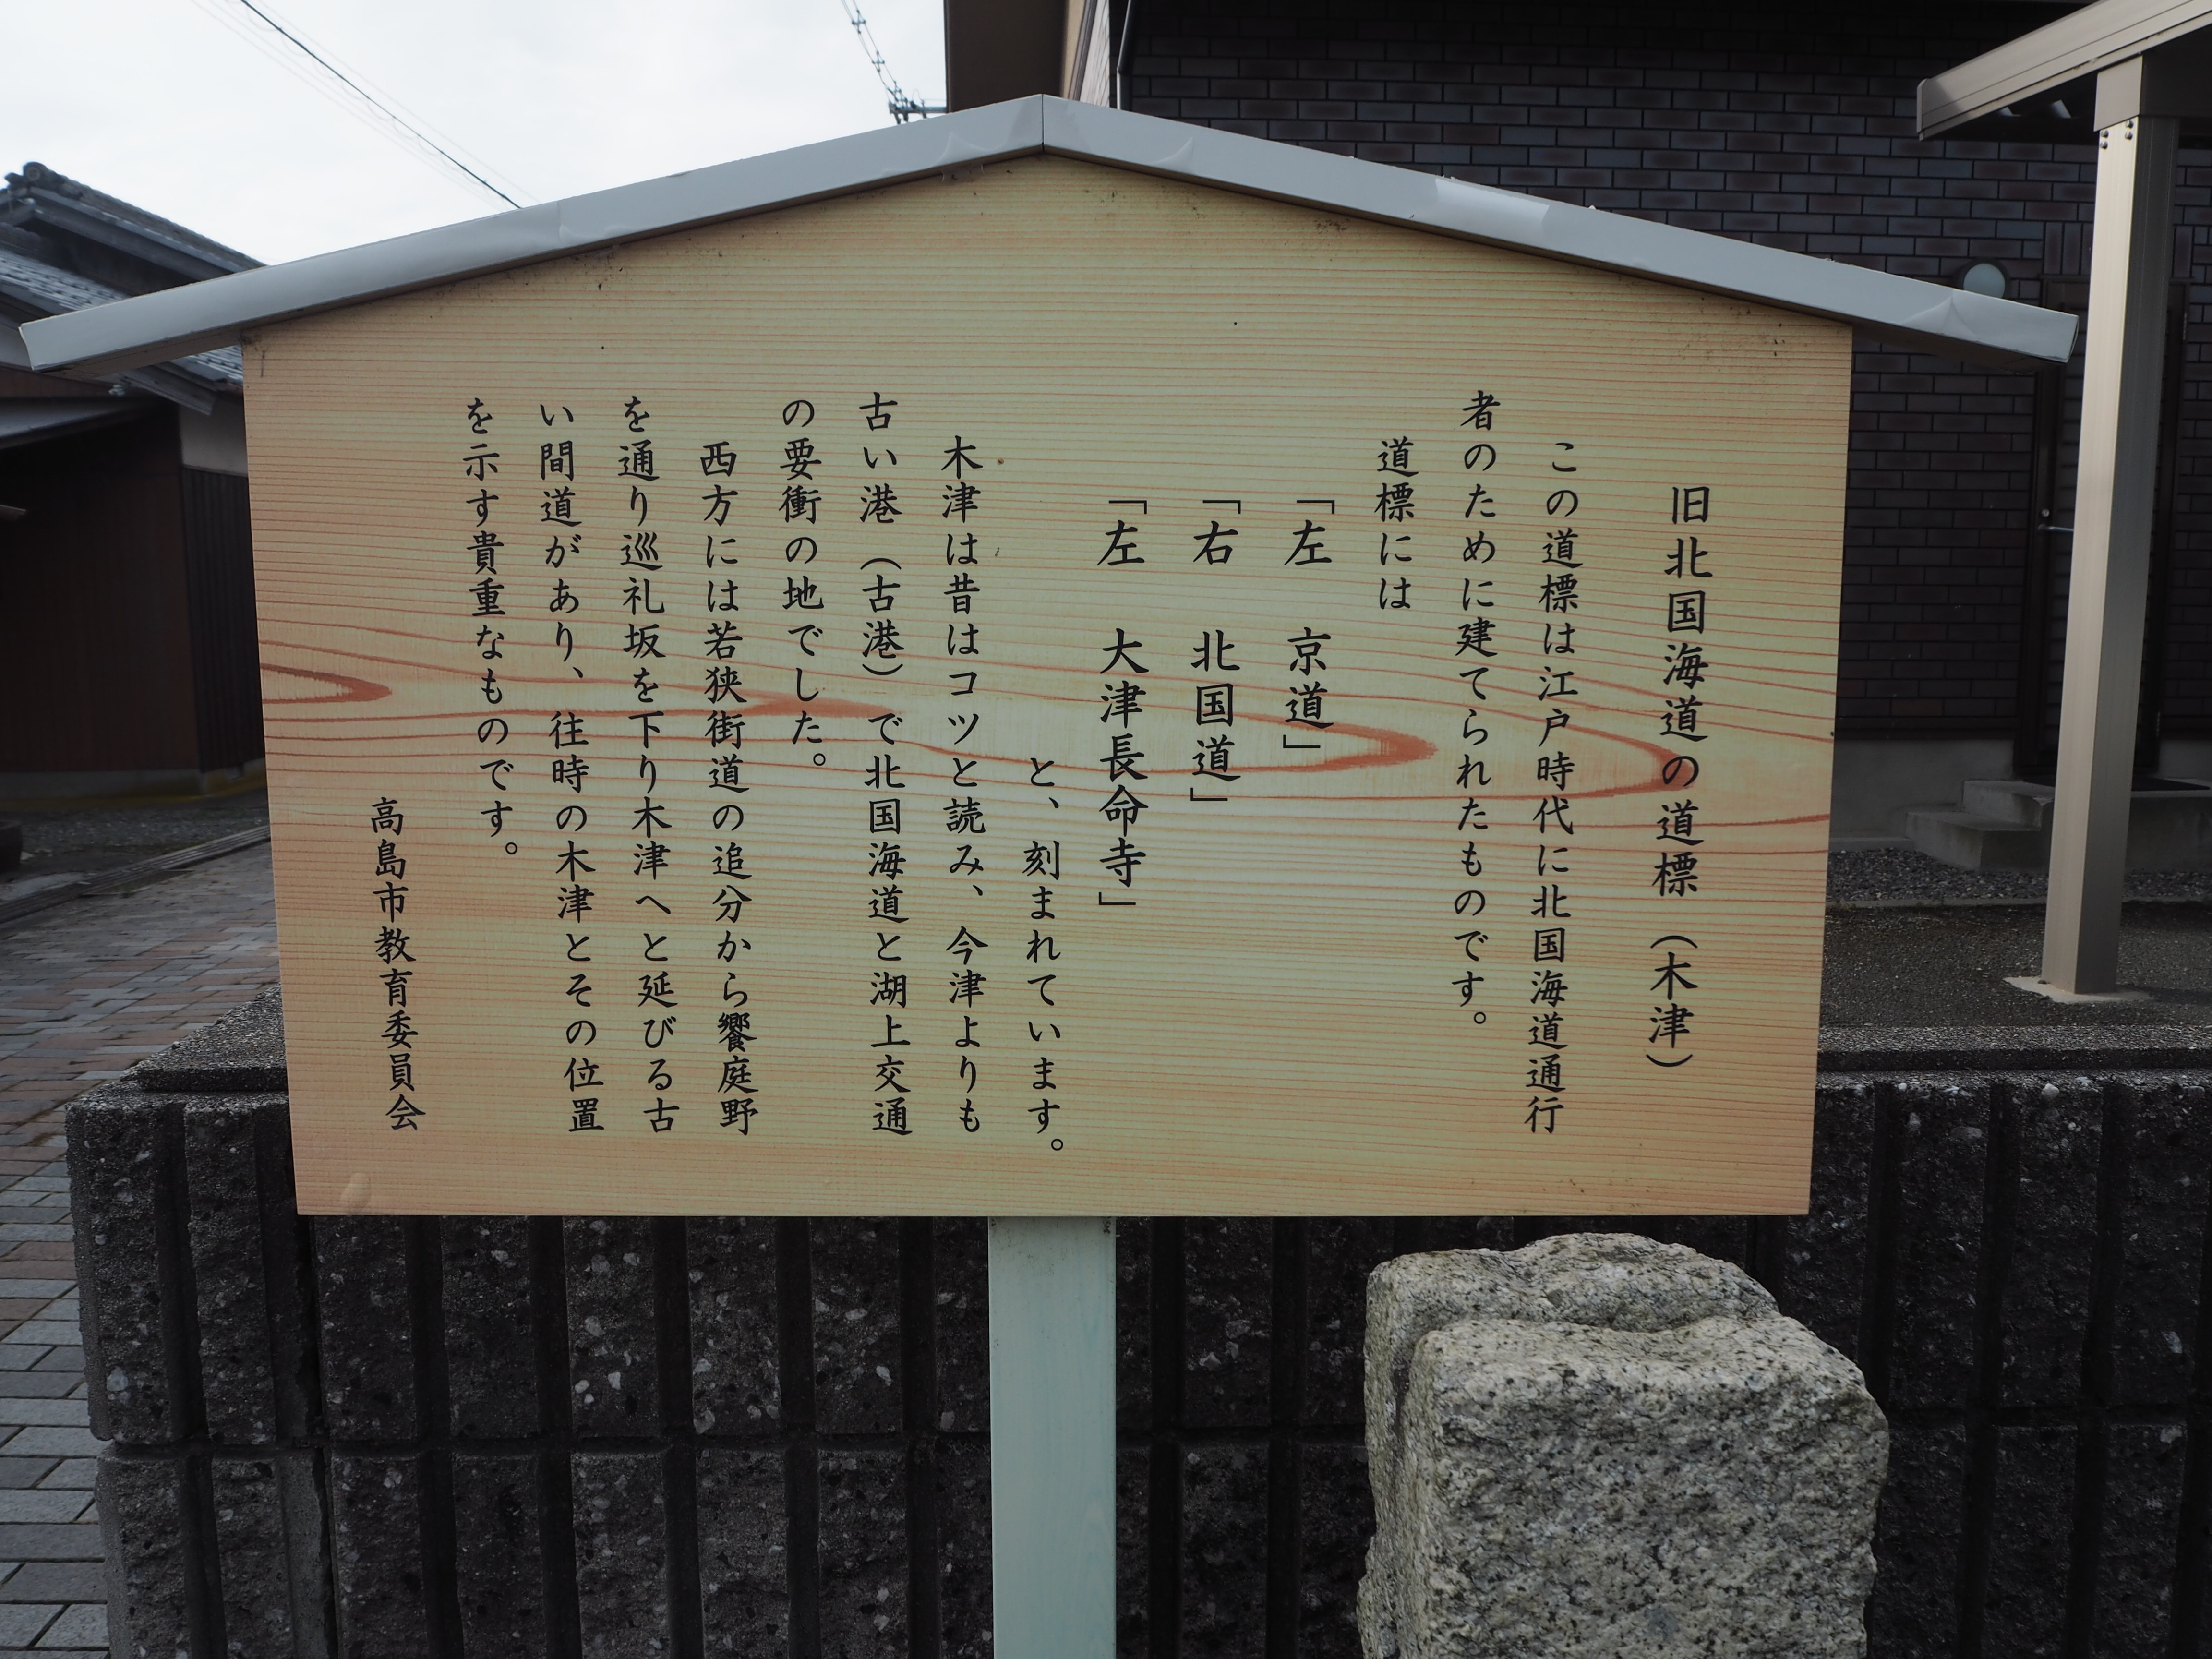 旧北国海道の道標（木津）
この道標は江戸時代に北国海道通行
者のために建てられたものです。
道標には
「左　京道」
「右　北国道」
「左　大津長命寺」
と、刻まれています。
木津は昔はコツと読み、今津よりも
古い港（古港）で北国海道と湖上交通
の要衝の地でした。
西方には若狭街道の追分から饗庭野
を通り巡礼坂を下り木津へと延びる古
い間道があり、往時の木津とその位置
を示す貴重なものです。
高島市教育委員会